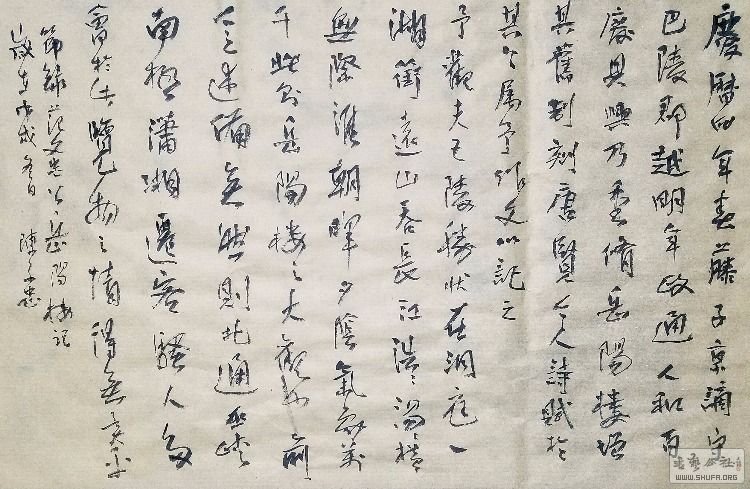 慶曆四年春藤子京謫守
巴陵郡越明年政通人和百
廢具興乃重脩岳陽樓增
其舊制刻唐賢今人詩賦於
其上属予作文以記之
予觀夫巴陵勝狀在洞庭一
湖銜遠山吞長江浩〻湯橫
無際涯朝暉夕陰氣象萬
千此則岳陽樓之大觀也前
人之述備矣然則北通巫峽
南極瀟湘遷客騷人多
會於此覽物之情得無異乎
節錄范文忠公岳陽樓記
歲在戊戌冬月 陳忠
书法公社
WWW.SHUFA.ORG